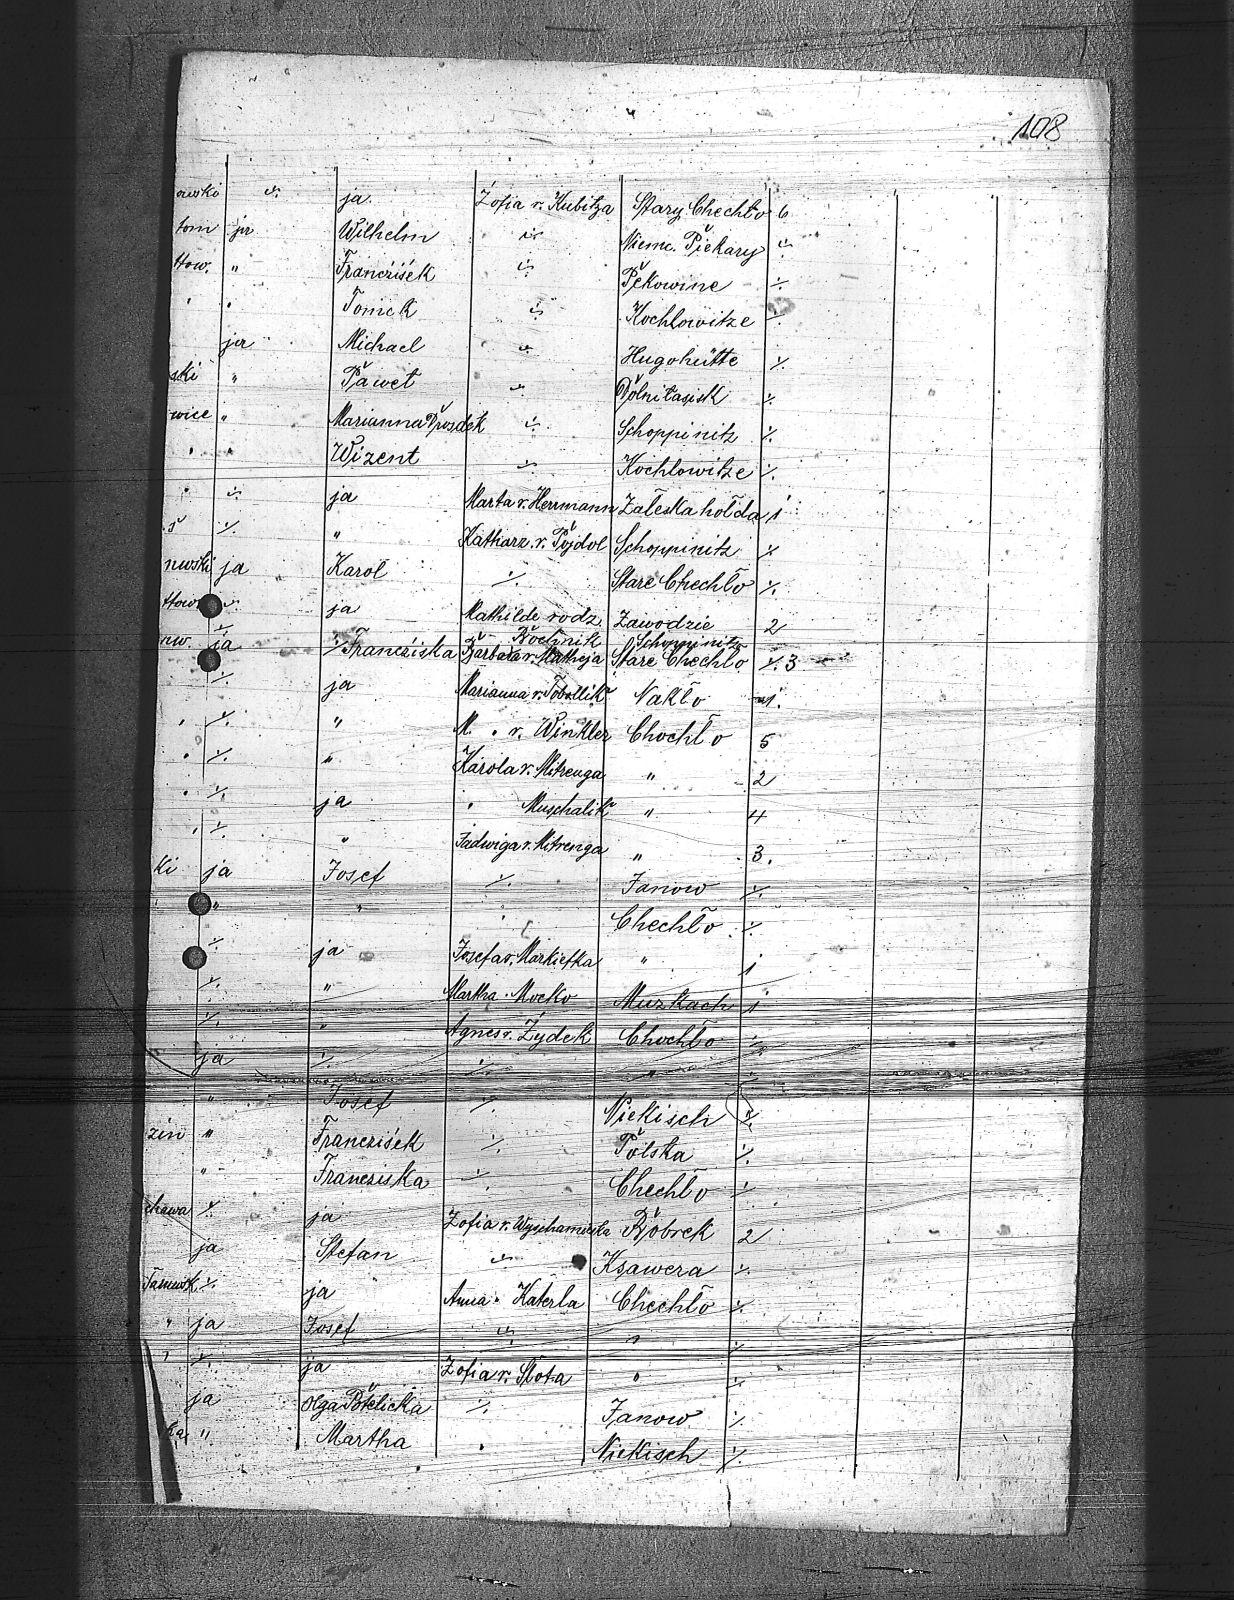 108
owski ÷ ja. Zofia v. Kubitza Stary Chechło 6
tom ja Wilhelm ÷ Niemc. Piekary ÷
ttow. " Franciśek ÷ Pekowine ÷
" " Tomek ÷ Kochlowitze ÷
ja Michael ÷ Hugohütte ÷
ski " Paweł ÷ ÷
wice " Marianna ÷ Schoppinitz ÷
" " Wizent ÷ Kochlowitze ÷
" ÷ ja Marta v. Herrmann Załeska hołda 1
ś ÷ " Katharz. v. Pojdol Schoppinitz ÷
nwski ja Karol ÷ Stare Chechło ÷
ttow. ÷ ja Mathilde rodz. Zawodzie 2
Bochnik Schoppinitz
nw. ja Franciśka Barbara v. Matheja Stare Chechło ÷ 3
÷ ja Marianna v. Tobollik Nakło 1.
" ÷ " M. " v. Winkler Chechło 5
" ÷ " Karola v. Mitrenga " 2
" ÷ ja " Muschalik " 4
" ÷ " Jadwiga v. Mitrenga " 3.
ki ja Josef ÷ Janow ÷
" " " Chechło ÷
÷ ja Josefa v. Markiefka " 1
÷ " Martha Mocko Murkach 1
÷ " Agnes v. Zydek Chechło ÷
ja ÷ ÷ " ÷
" Josef ÷ Nickisch ÷
zin " Franciśek ÷ Polska ÷
" Franciska ÷ Chechło ÷
chawa ÷ ja Zofia v. Bobrek 2
ja Stefan ÷ Ksawera ÷
Tarnowsk ÷ ja Anna " Katerla Chechło ÷
" ja Josef ÷ " ÷
" ÷ ja Zofia v. Słota " ÷
ja Olga ÷ Janow ÷
ka " Martha " Nickisch ÷